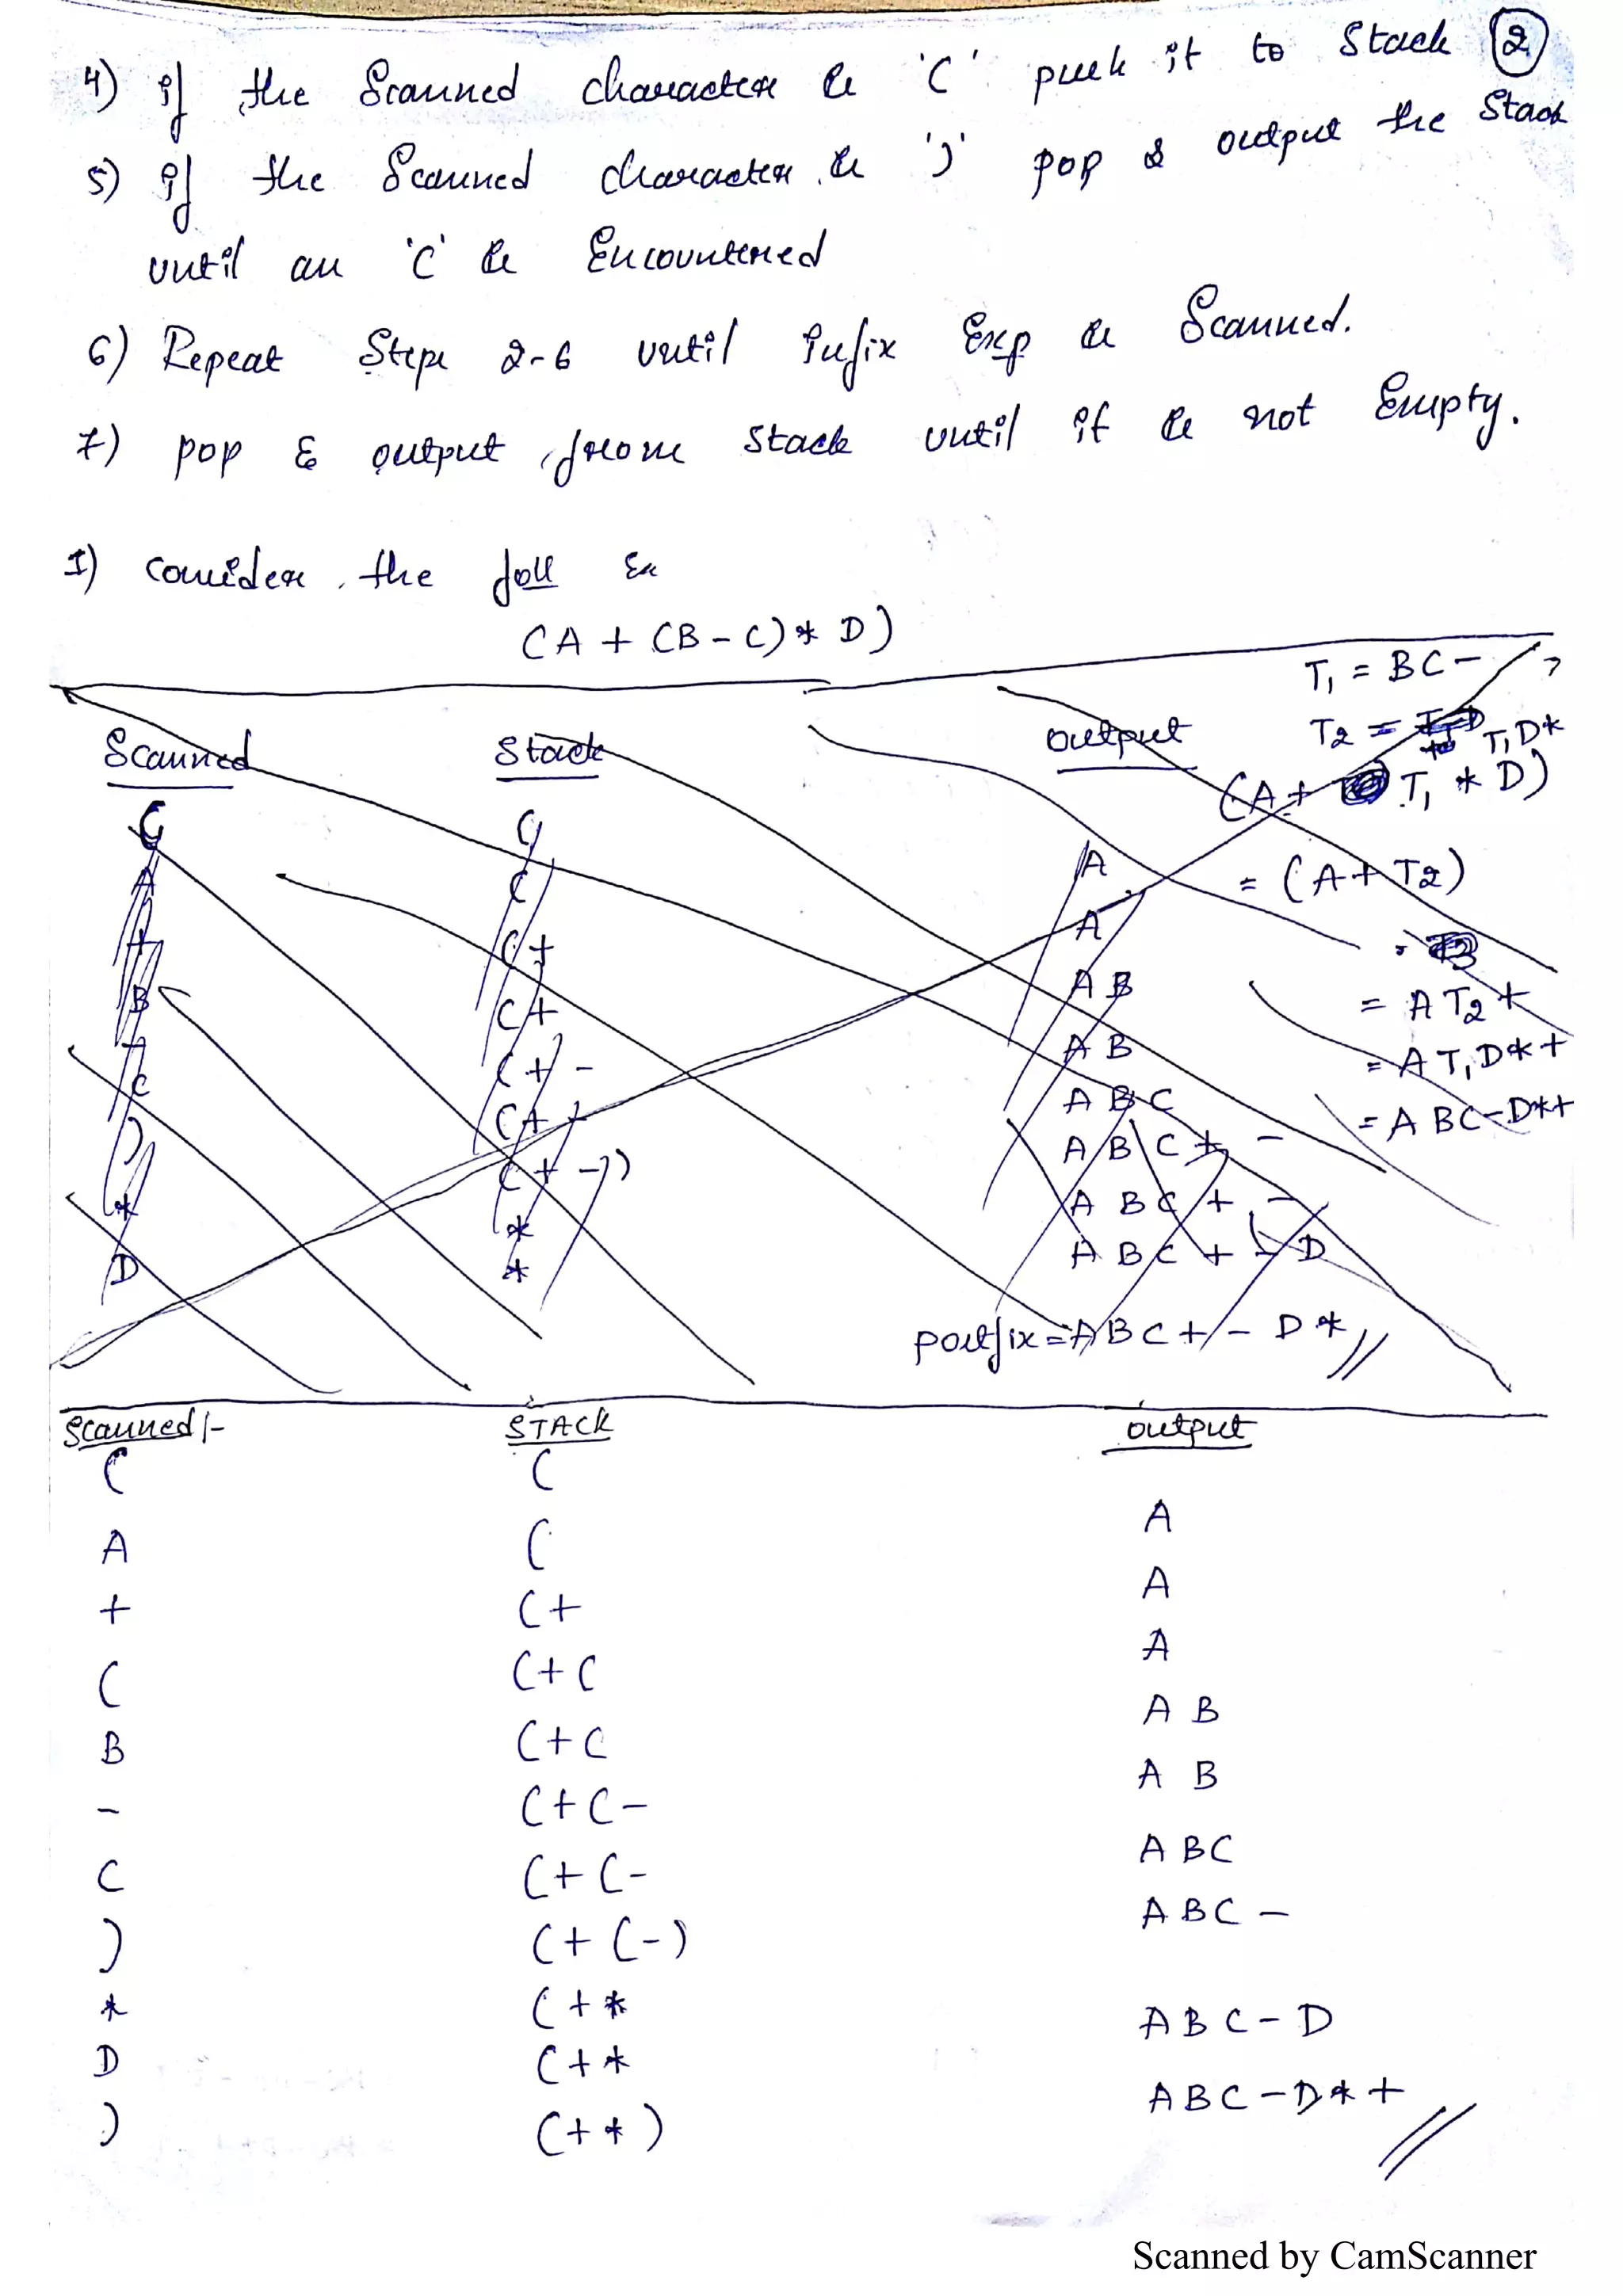 4) if the Scanned character is '(' push it to Stack (2)
5) if the Scanned character is ')' pop & output the Stack
until an '(' is Encountered
6) Repeat Steps 2-6 until infix Exp is Scanned.
7) pop & output from Stack until it is not Empty.
1) consider the foll Ex
(A + (B - C) * D)
T1 = BC-
Scanned Stack output T2 = T1D*
(A + T1 * D)
( (
A ( A = (A + T2)
+ (+ A
B (+ A B = A T2 +
- (+ - A B = A T1 D * +
C (+ - A B C = A B C - D * +
) (+ -)) A B C + -
* * A B C + -
D * A B C + - D
postfix = A B C + - D * //
Scanned :- STACK output
( (
A ( A
+ (+ A
( (+( A
B (+( A B
- (+(- A B
C (+(- A B C
) (+(-) A B C -
* (+*
D (+* A B C - D
) (+*) A B C - D * + //
Scanned by CamScanner